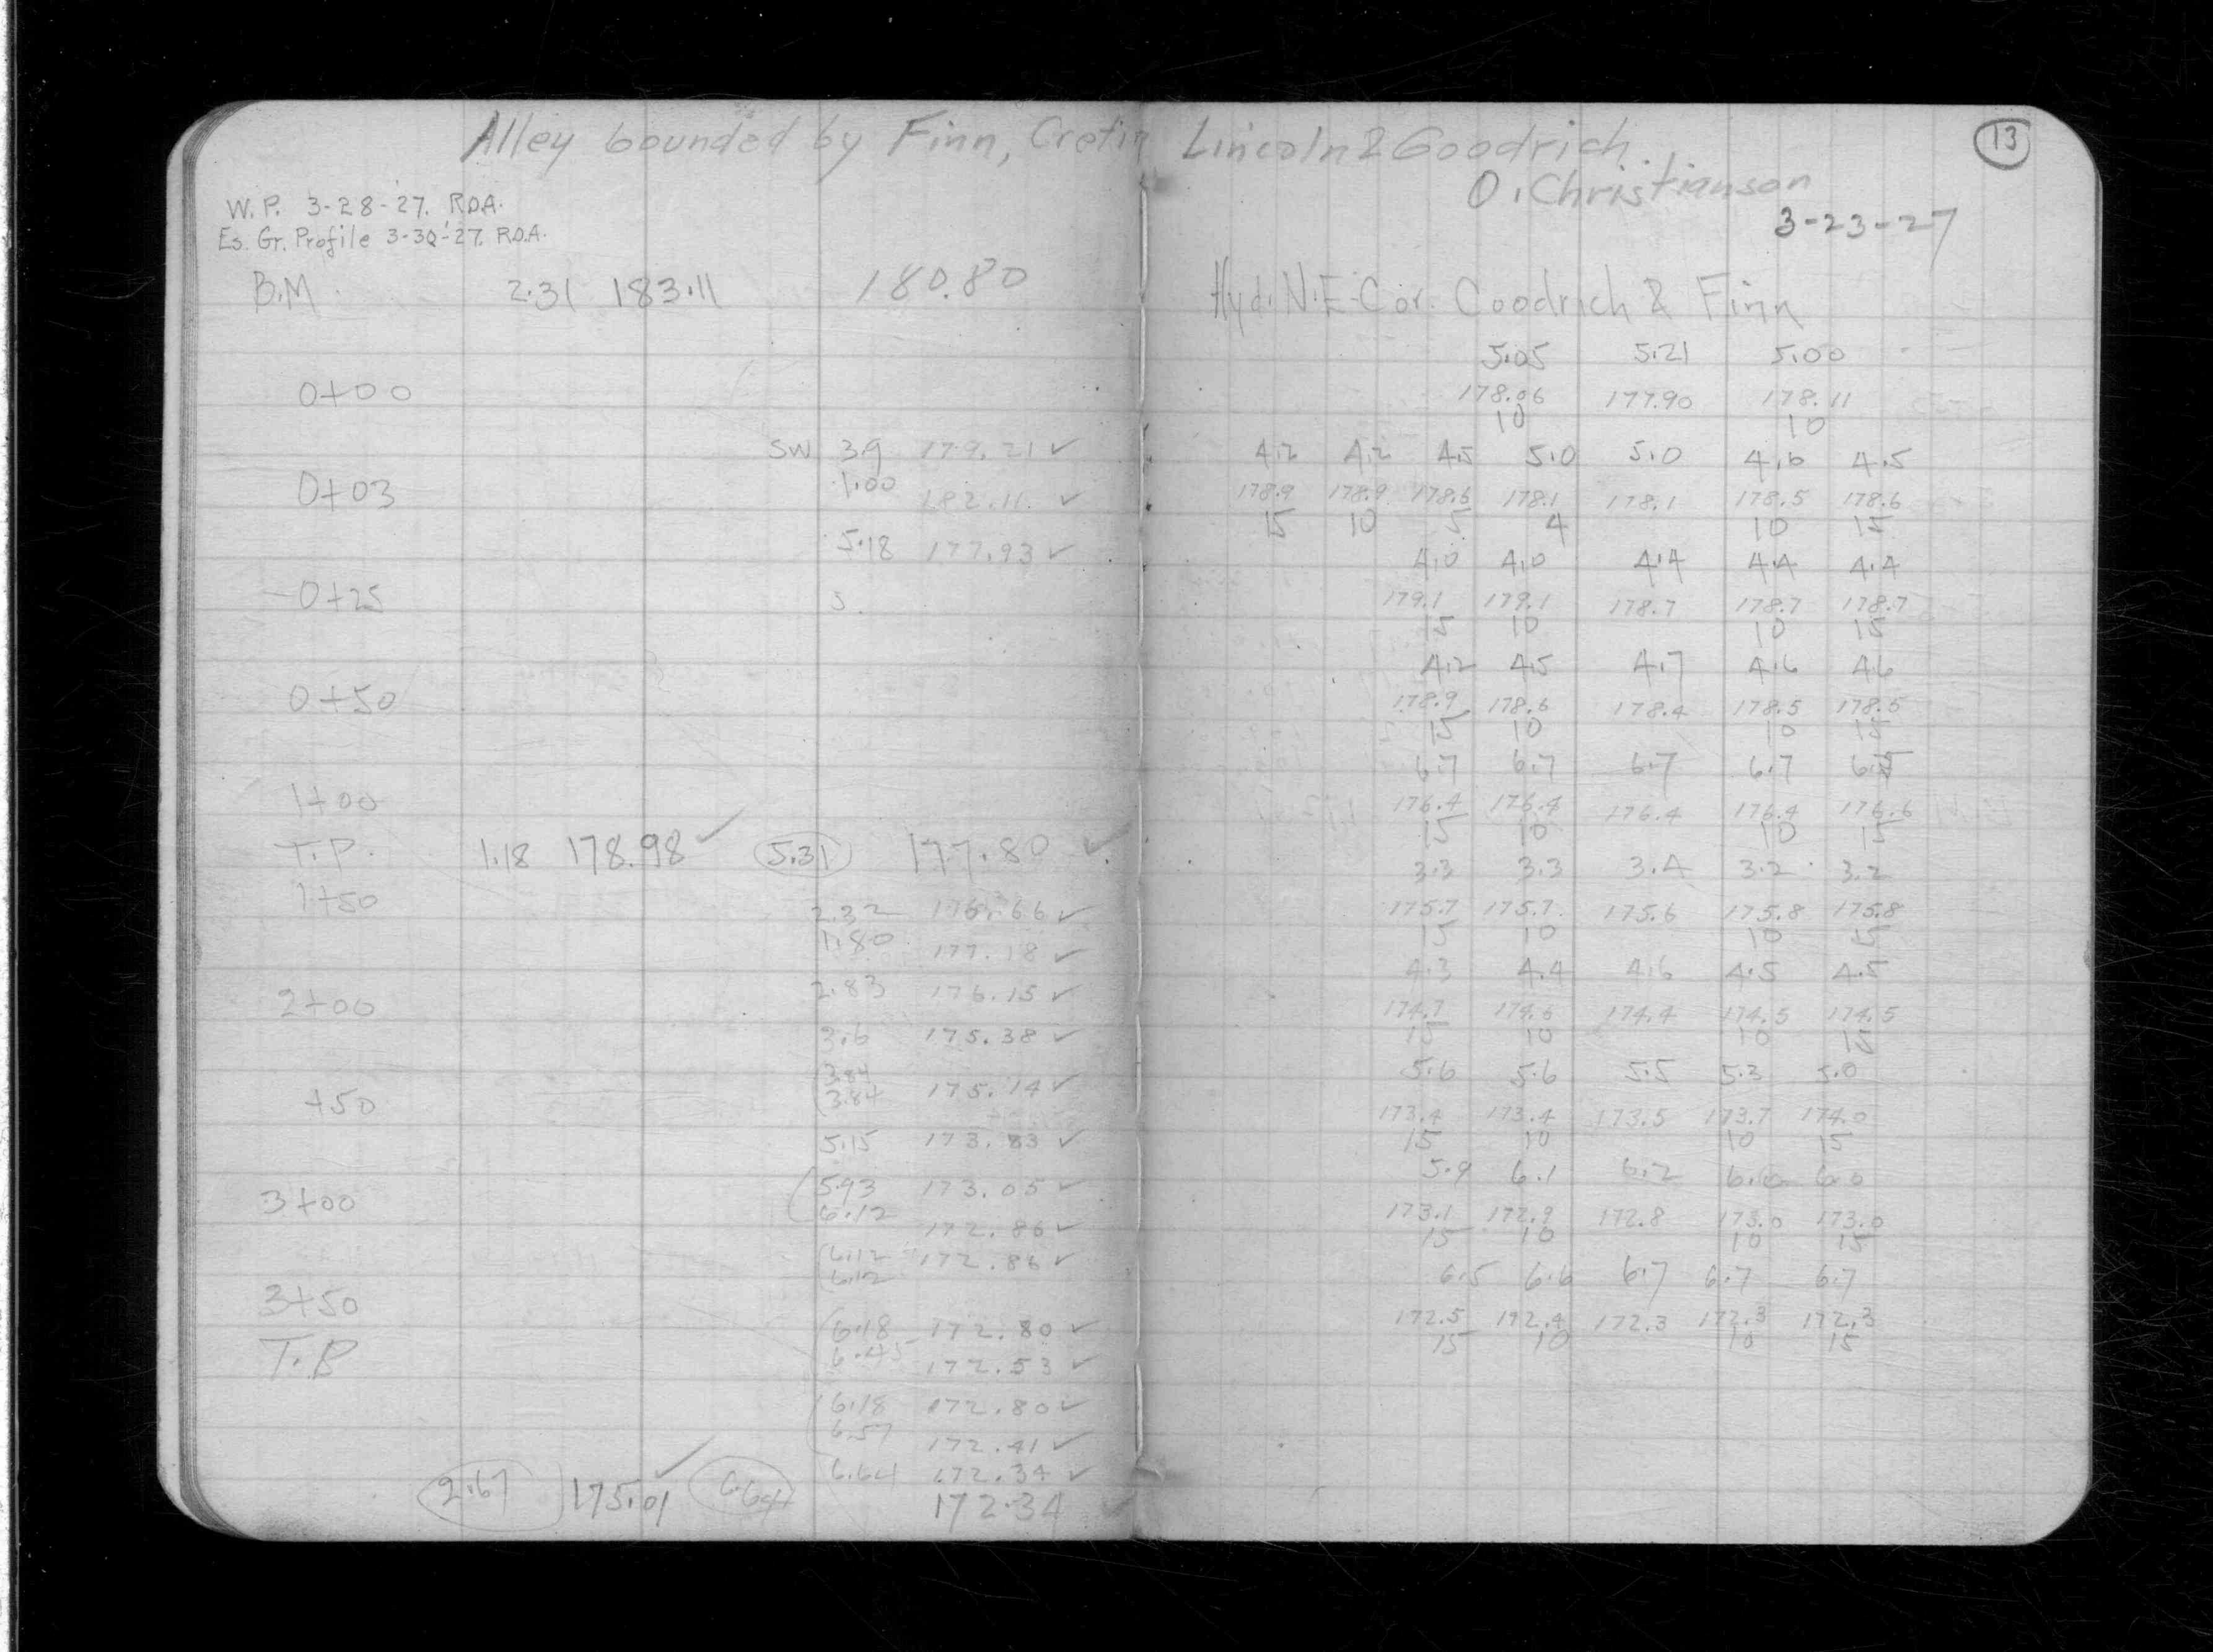 Alley bounded by Finn, Cretin Lincoln & Goodrich.
13
O. Christianson
3-23-27
W.P. 3-28-27. R.D.A.
Es. Gr. Profile 3-30-27. R.D.A.
B.M 2.31 183.11 180.80
0+00
SW 3.9 179.21 ✓
0+03 1.00 182.11 ✓
5.18 177.93 ✓
0+25 5.
0+50
1+00
T.P. 1.18 178.98 ✓ 5.31 177.80 ✓
1+50 2.32 176.66 ✓
1.80 177.18 ✓
2+00 2.83 176.15 ✓
3.6 175.38 ✓
3.84
+50 3.84 175.14 ✓
5.15 173.83 ✓
3+00 5.93 173.05 ✓
6.12 172.86 ✓
6.12 172.86 ✓
6.12
3+50
6.18 172.80 ✓
T.P. 6.45 172.53 ✓
6.18 172.80 ✓
6.57 172.41 ✓
6.64 172.34 ✓
2.67 175.01 ✓ 6.64 172.34 ✓
Hyd. N.E. Cor. Goodrich & Finn
5.05 5.21 5.00
178.06 177.90 178.11
10 10
4.2 4.2 4.5 5.0 5.0 4.6 4.5
178.9 178.9 178.6 178.1 178.1 178.5 178.6
15 10 5 4 10 15
4.0 4.0 4.4 4.4 4.4
179.1 179.1 178.7 178.7 178.7
15 10 10 15
4.2 4.5 4.7 4.6 4.6
178.9 178.6 178.4 178.5 178.5
15 10 10 15
6.7 6.7 6.7 6.7 6.5
176.4 176.4 176.4 176.4 176.6
15 10 10 15
3.3 3.3 3.4 3.2 3.2
175.7 175.7 175.6 175.8 175.8
15 10 10 15
4.3 4.4 4.6 4.5 4.5
174.7 174.6 174.4 174.5 174.5
15 10 10 15
5.6 5.6 5.5 5.3 5.0
173.4 173.4 173.5 173.7 174.0
15 10 10 15
5.9 6.1 6.2 6.0 6.0
173.1 172.9 172.8 173.0 173.0
15 10 10 15
6.5 6.6 6.7 6.7 6.7
172.5 172.4 172.3 172.3 172.3
15 10 10 15